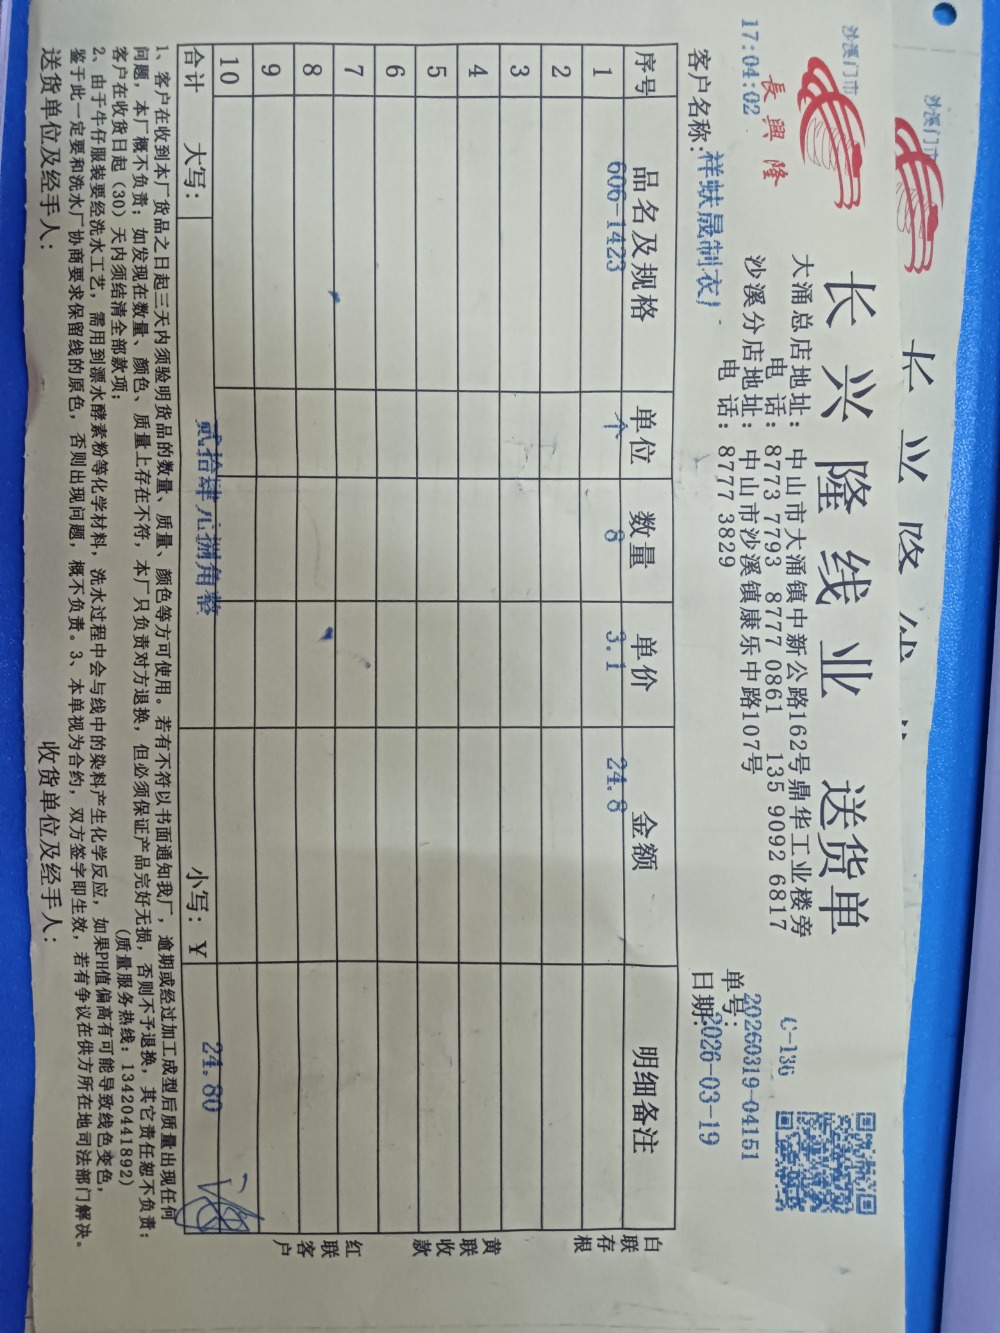 沙溪门市
长兴隆线
沙溪门市
17:04:02
長興隆
长兴隆线业 送货单
大涌总店地址：中山市大涌镇中新公路162号鼎华工业楼旁
电 话：8773 7793 8777 0861 135 9092 6817
沙溪分店地址：中山市沙溪镇康乐中路107号
电 话：8777 3829
C-136
单号：20260319-04151
日期：2026-03-19
客户名称：祥蚨晟制衣厂
序号 品名及规格 单位 数量 单价 金额 明细备注
1 606-1423 个 8 3.1 24.8
2
3
4
5
6
7
8
9
10
合计 大写：贰拾肆元捌角整 小写：¥ 24.80
白联存根
黄联收款
红联客户
1、客户在收到本厂货品之日起三天内须验明货品的数量、质量、颜色等方可使用。若有不符以书面通知我厂，逾期或经过加工成型后质量出现任何
问题，本厂概不负责；如发现在数量、颜色、质量上存在不符，本厂只负责对方退换，但必须保证产品完好无损，否则不予退换，其它责任恕不负责；
客户在收货日起（30）天内须结清全部款项； （质量服务热线：13420441892）
2、由于牛仔服装要经洗水工艺，需用到漂水酵素粉等化学材料，洗水过程中会与线中的染料产生化学反应，如果PH值偏高有可能导致线色变色，
鉴于此一定要和洗水厂协商要求保留线的原色，否则出现问题，概不负责。3、本单视为合约，双方签字即生效，若有争议在供方所在地司法部门解决。
送货单位及经手人： 收货单位及经手人：